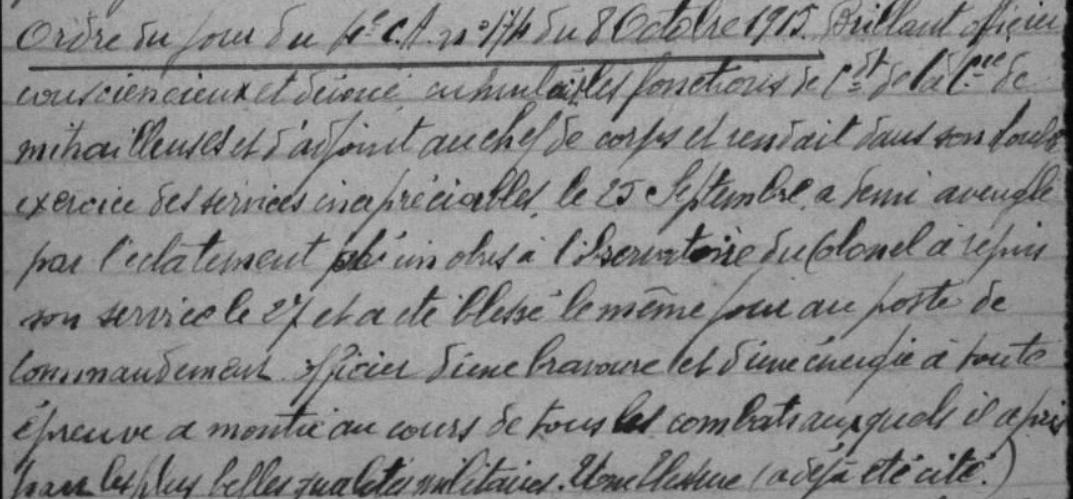 Ordre du jour du 4e C.A. n° 174 du 8 Octobre 1915. Brillant officier
consciencieux et dévoué, cumulait les fonctions de Cdt de la Cie de
mitrailleuses et d'adjoint au chef de corps et rendait dans son double
exercice des services inapréciables, le 25 Septembre, a demi aveuglé
par l'éclatement d'un obus à l'observatoire du Colonel a repris
son service le 27 et a été blessé le même jour au poste de
commandement. Officier d'une bravoure et d'une énergie à toute
épreuve a montré au cours de tous les combats auxquels il a pris
part les plus belles qualités militaires. Une blessure (a déjà été cité.)